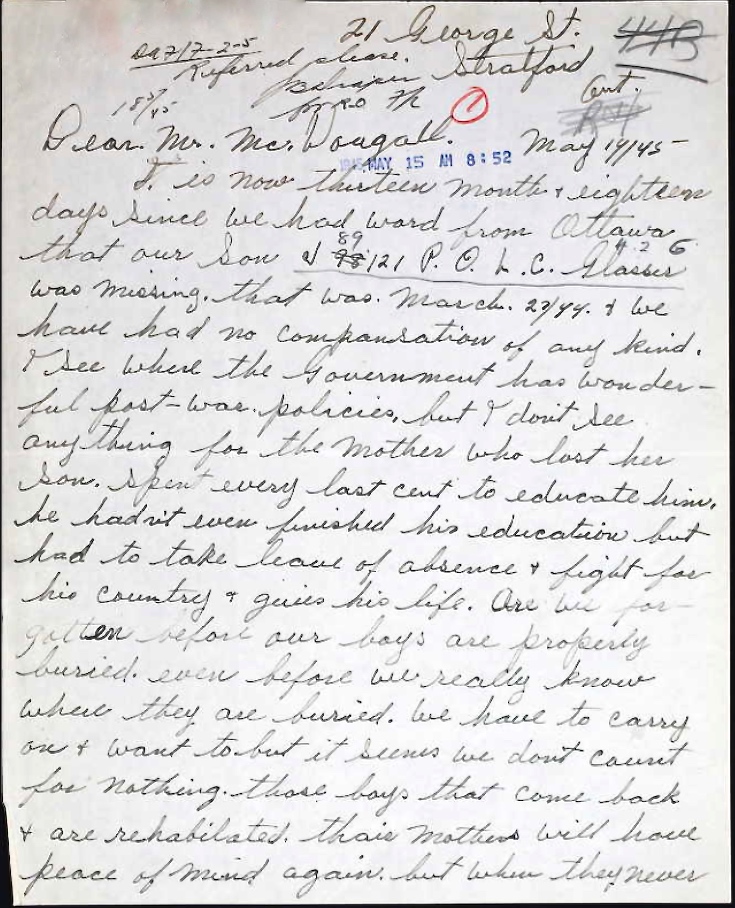 21 George St.
Stratford
Ont.
Referred please.
Dear Mr. Mc. Dougall.
May 14/45
1945 MAY 15 AM 8:52
It is now thirteen month & eighteen
days since we had word from Ottawa
that our son J 89121 P. O. L. C. Glasser
was missing. that was. March. 27/44. & we
have had no compansation of any kind.
I see where the Government has wonder-
ful post-war. policies, but I dont see
anything for the Mother who lost her
son. Spent every last cent to educate him.
he hadn't even finished his education but
had to take leave of absence & fight for
his country & gives his life. Are we for-
gotten before our boys are properly
buried. even before we really know
where they are buried. We have to carry
on & want to but it seems we dont count
for nothing. those boys that come back
& are rehabilated. thair Mothers will have
peace of mind again. but when they never